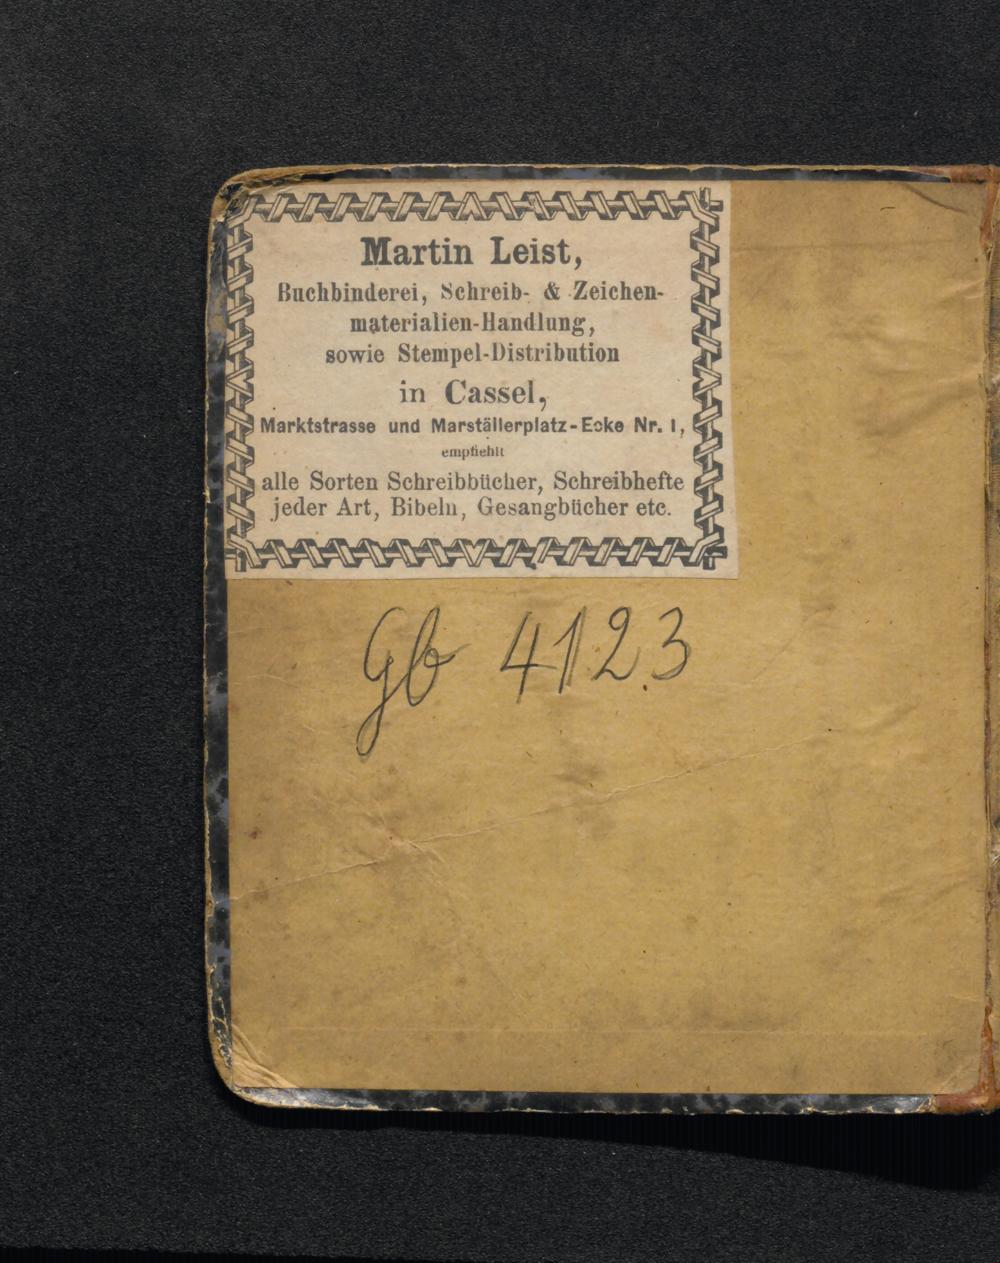 Martin Leist,
Buchbinderei, Schreib- & Zeichen-
materialien-Handlung,
sowie Stempel-Distribution
in Cassel,
Marktstrasse und Marställerplatz-Ecke Nr. 1,
empfiehlt
alle Sorten Schreibbücher, Schreibhefte
jeder Art, Bibeln, Gesangbücher etc.
Gb 4123